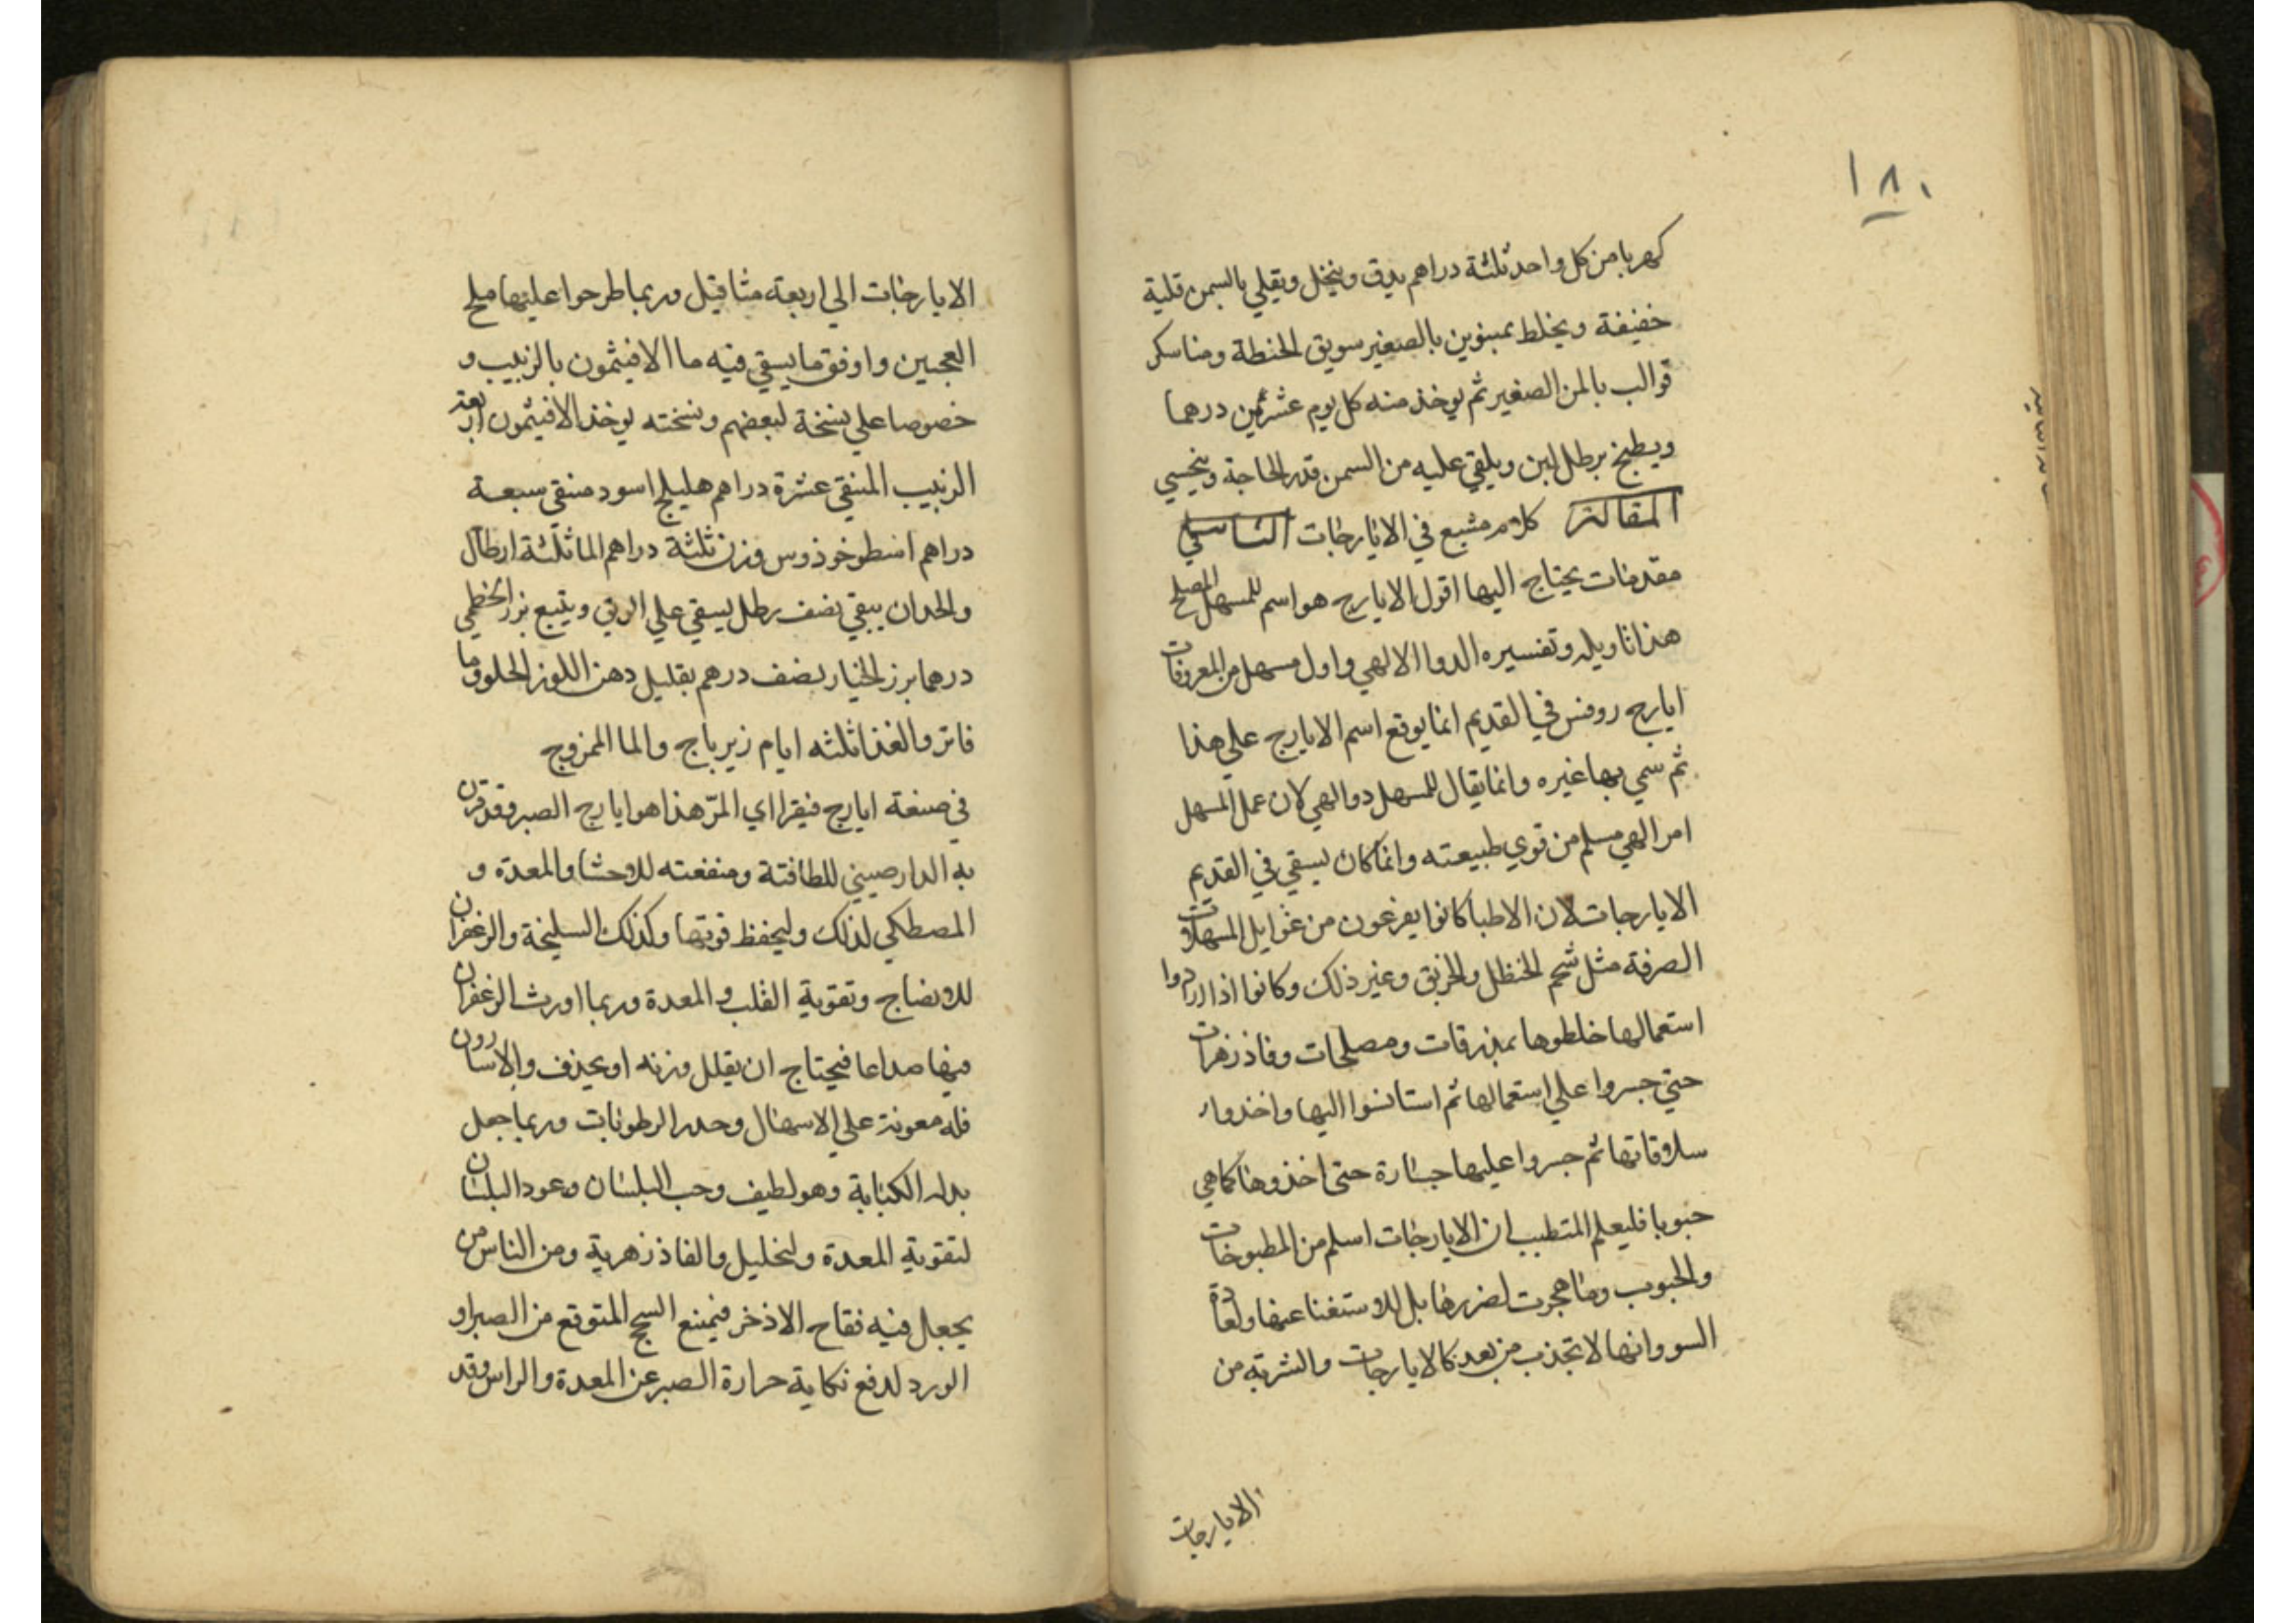 ١٨٠
كهربا من كل واحد ثلثة دراهم يدق وينخل ويقلي بالسمن قلية
خفيفة ويخلط بمبنوين بالصغير سويق الحنطة ومنا سكر
قوالب بالمن الصغير ثم يوخذ منه كل يوم عشرين درهما
ويطبخ برطل لبن ويلقي عليه من السمن قدر الحاجة ويتحسي
المقالة كلام مشبع في الايارجات
مقدمات يحتاج اليها اقول الايارج هو اسم للمسهل المصلح
هذا تاويله وتفسيره الدوا الالهي واول مسهل من المعروفات
ايارج روفس في القديم انما يوقع اسم الايارج علي هذا
ثم سمي بها غيره وانما يقال للمسهل دوا الهي لان عمل المسهل
امر الهي مسلم من قوي طبيعته وانما كان يسقي في القديم
الايارجات لان الاطبا كانوا يفزعون من غوايل المسهلات
الصرفة مثل شحم الحنظل والخربق وغير ذلك وكانوا اذا ارادوا
استعمالها خلطوها بمبذرقات ومصلحات وفاذزهرات
حتي جسروا علي استعمالها ثم استانسوا اليها واخذوا
سلاقاتها ثم جسروا عليها جسارة حتي اخذوها كما هي
حبوبا فليعلم المتطبب ان الايارجات اسلم من المطبوخات
والحبوب وما هجرت لضررها بل للاستغنا عنها ولعادة
السو وانها لا تجذب من بعد كالايارجات والشربة من
الايارجات
الايارجات الي اربعة مثاقيل وربما طرحوا عليها ملح
العجين واوفق ما يسقي فيه ما الافيثمون بالزبيب و
خصوصا علي نسخة لبعضهم ونسخته يوخذ الافيثمون
الزبيب المنقي عشرة دراهم هليلج اسود منقي سبعة
دراهم اسطوخوذوس وزن ثلثة دراهم الما ثلثة ارطال
والحد ان يبقي نصف رطل يسقي علي الريق ويتبع بزر الخطمي
درهما بزر الخيار نصف درهم بقليل دهن اللوز الحلو وما
فاتر والغذا ثلثه ايام زيرباج والما الممزوج
في صنعة ايارج فيقرا اي المرّ هذا هو ايارج الصبر وقد قرن
به الدارصيني للطافتة ومنفعته للاحشا والمعدة و
المصطكي لذلك وليحفظ قوتها وكذلك السليخة والزعفران
للانضاج وتقوية القلب والمعدة وربما اورث الزعفران
فيها صداعا فيحتاج ان يقلل وزنه او يحذف والاسارون
فله معونة علي الاسهال وحدر الرطوبات وربما جعل
بدله الكبابة وهو لطيف وحب البلسان وعود البلسان
لتقوية المعدة ولتحليل والفاذزهرية ومن الناس من
يجعل فيه فقاح الاذخر فيمنع السحج المتوقع من الصبر او
الورد لدفع نكاية حرارة الصبر عن المعدة والراس وقد